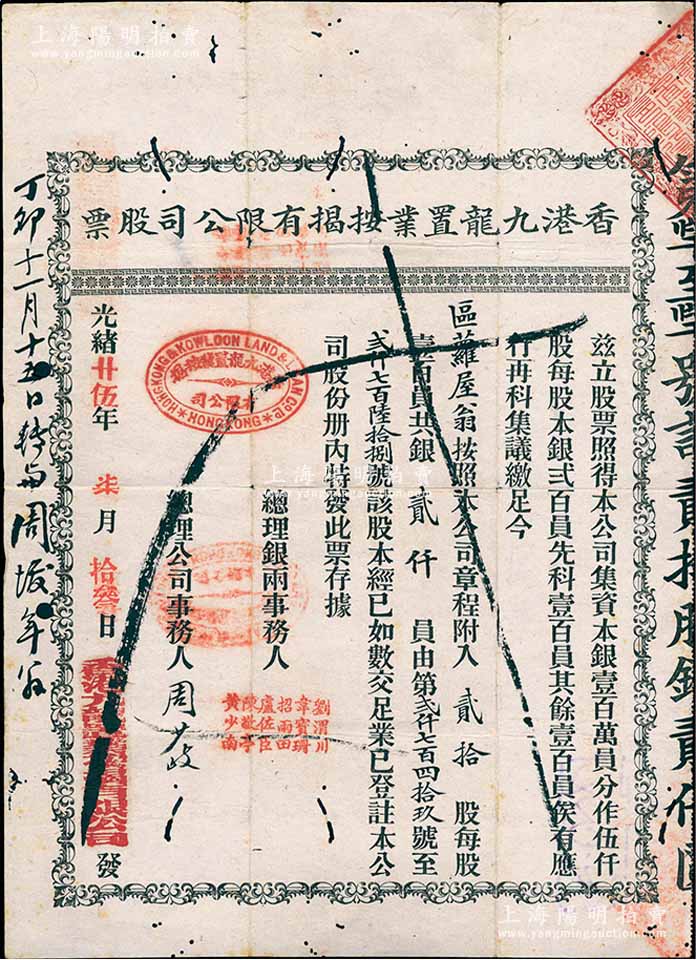 上海陽明拍賣
www.yangmingauction.com
香港九龍置業按揭有限公司股票
茲立股票照得本公司集資本銀壹百萬員分作伍仟
股每股本銀弍百員先科壹百員其餘壹百員俟有應
行再科集議繳足今
區蘿屋翁按照本公司章程附入貳拾股每股
壹百員共銀貳仟員由第弍仟七百四拾玖號至
弍仟七百陸拾捌號該股本經已如數交足業已登註本公
司股份册內特發此票存據
總理銀兩事務人
劉渭川
韋寶珊
招雨田
盧佐臣
陳敬亭
黄少南
總理公司事務人 周少岐
光緒廿伍年柒月拾叁日發
HONGKONG & KOWLOON LAND & LOAN CO LD
HONGKONG
港九龍置業按揭
有限公司
丁卯十一月十五日轉与周埈年翁
上海陽明拍賣
www.yangmingauction.com
上海陽明拍賣
www.yangmingauction.com